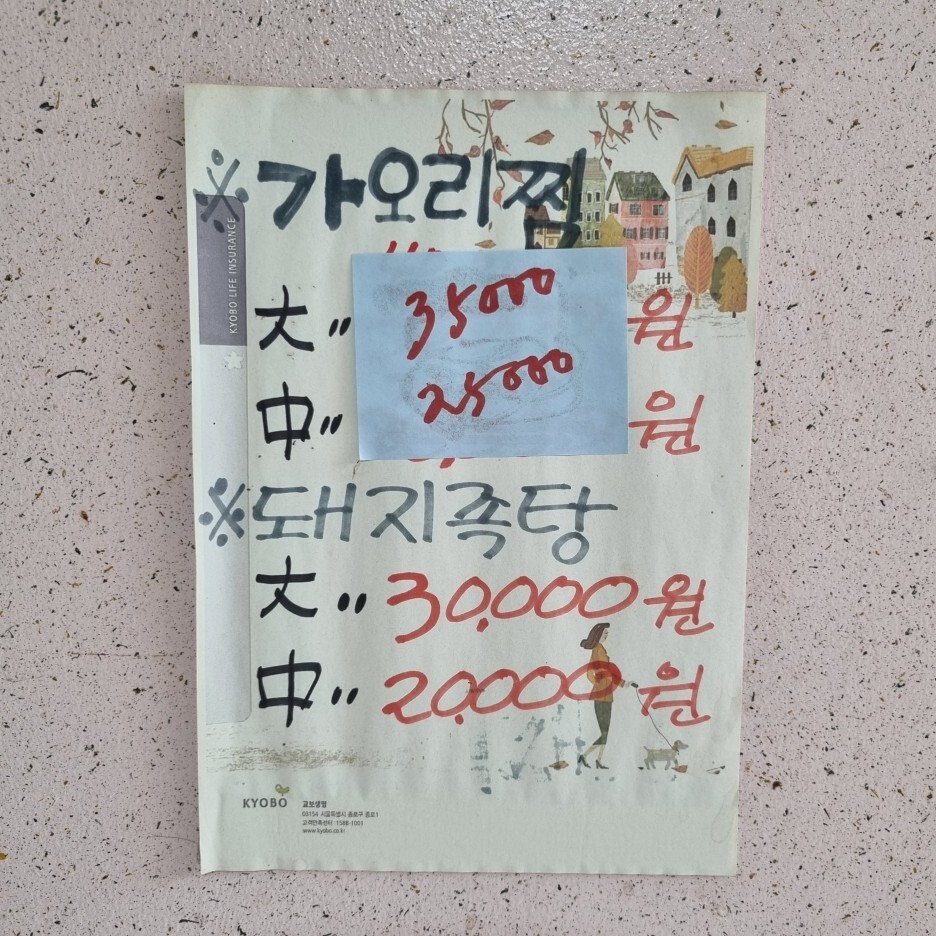 ※가오리찜
KYOBO LIFE INSURANCE
大〃 35000 원
中〃 25000 원
※돼지족탕
大〃 30,000원
中〃 20,000원
KYOBO 교보생명
03154 서울특별시 종로구 종로1
고객만족센터 1588-1001
www.kyobo.co.kr